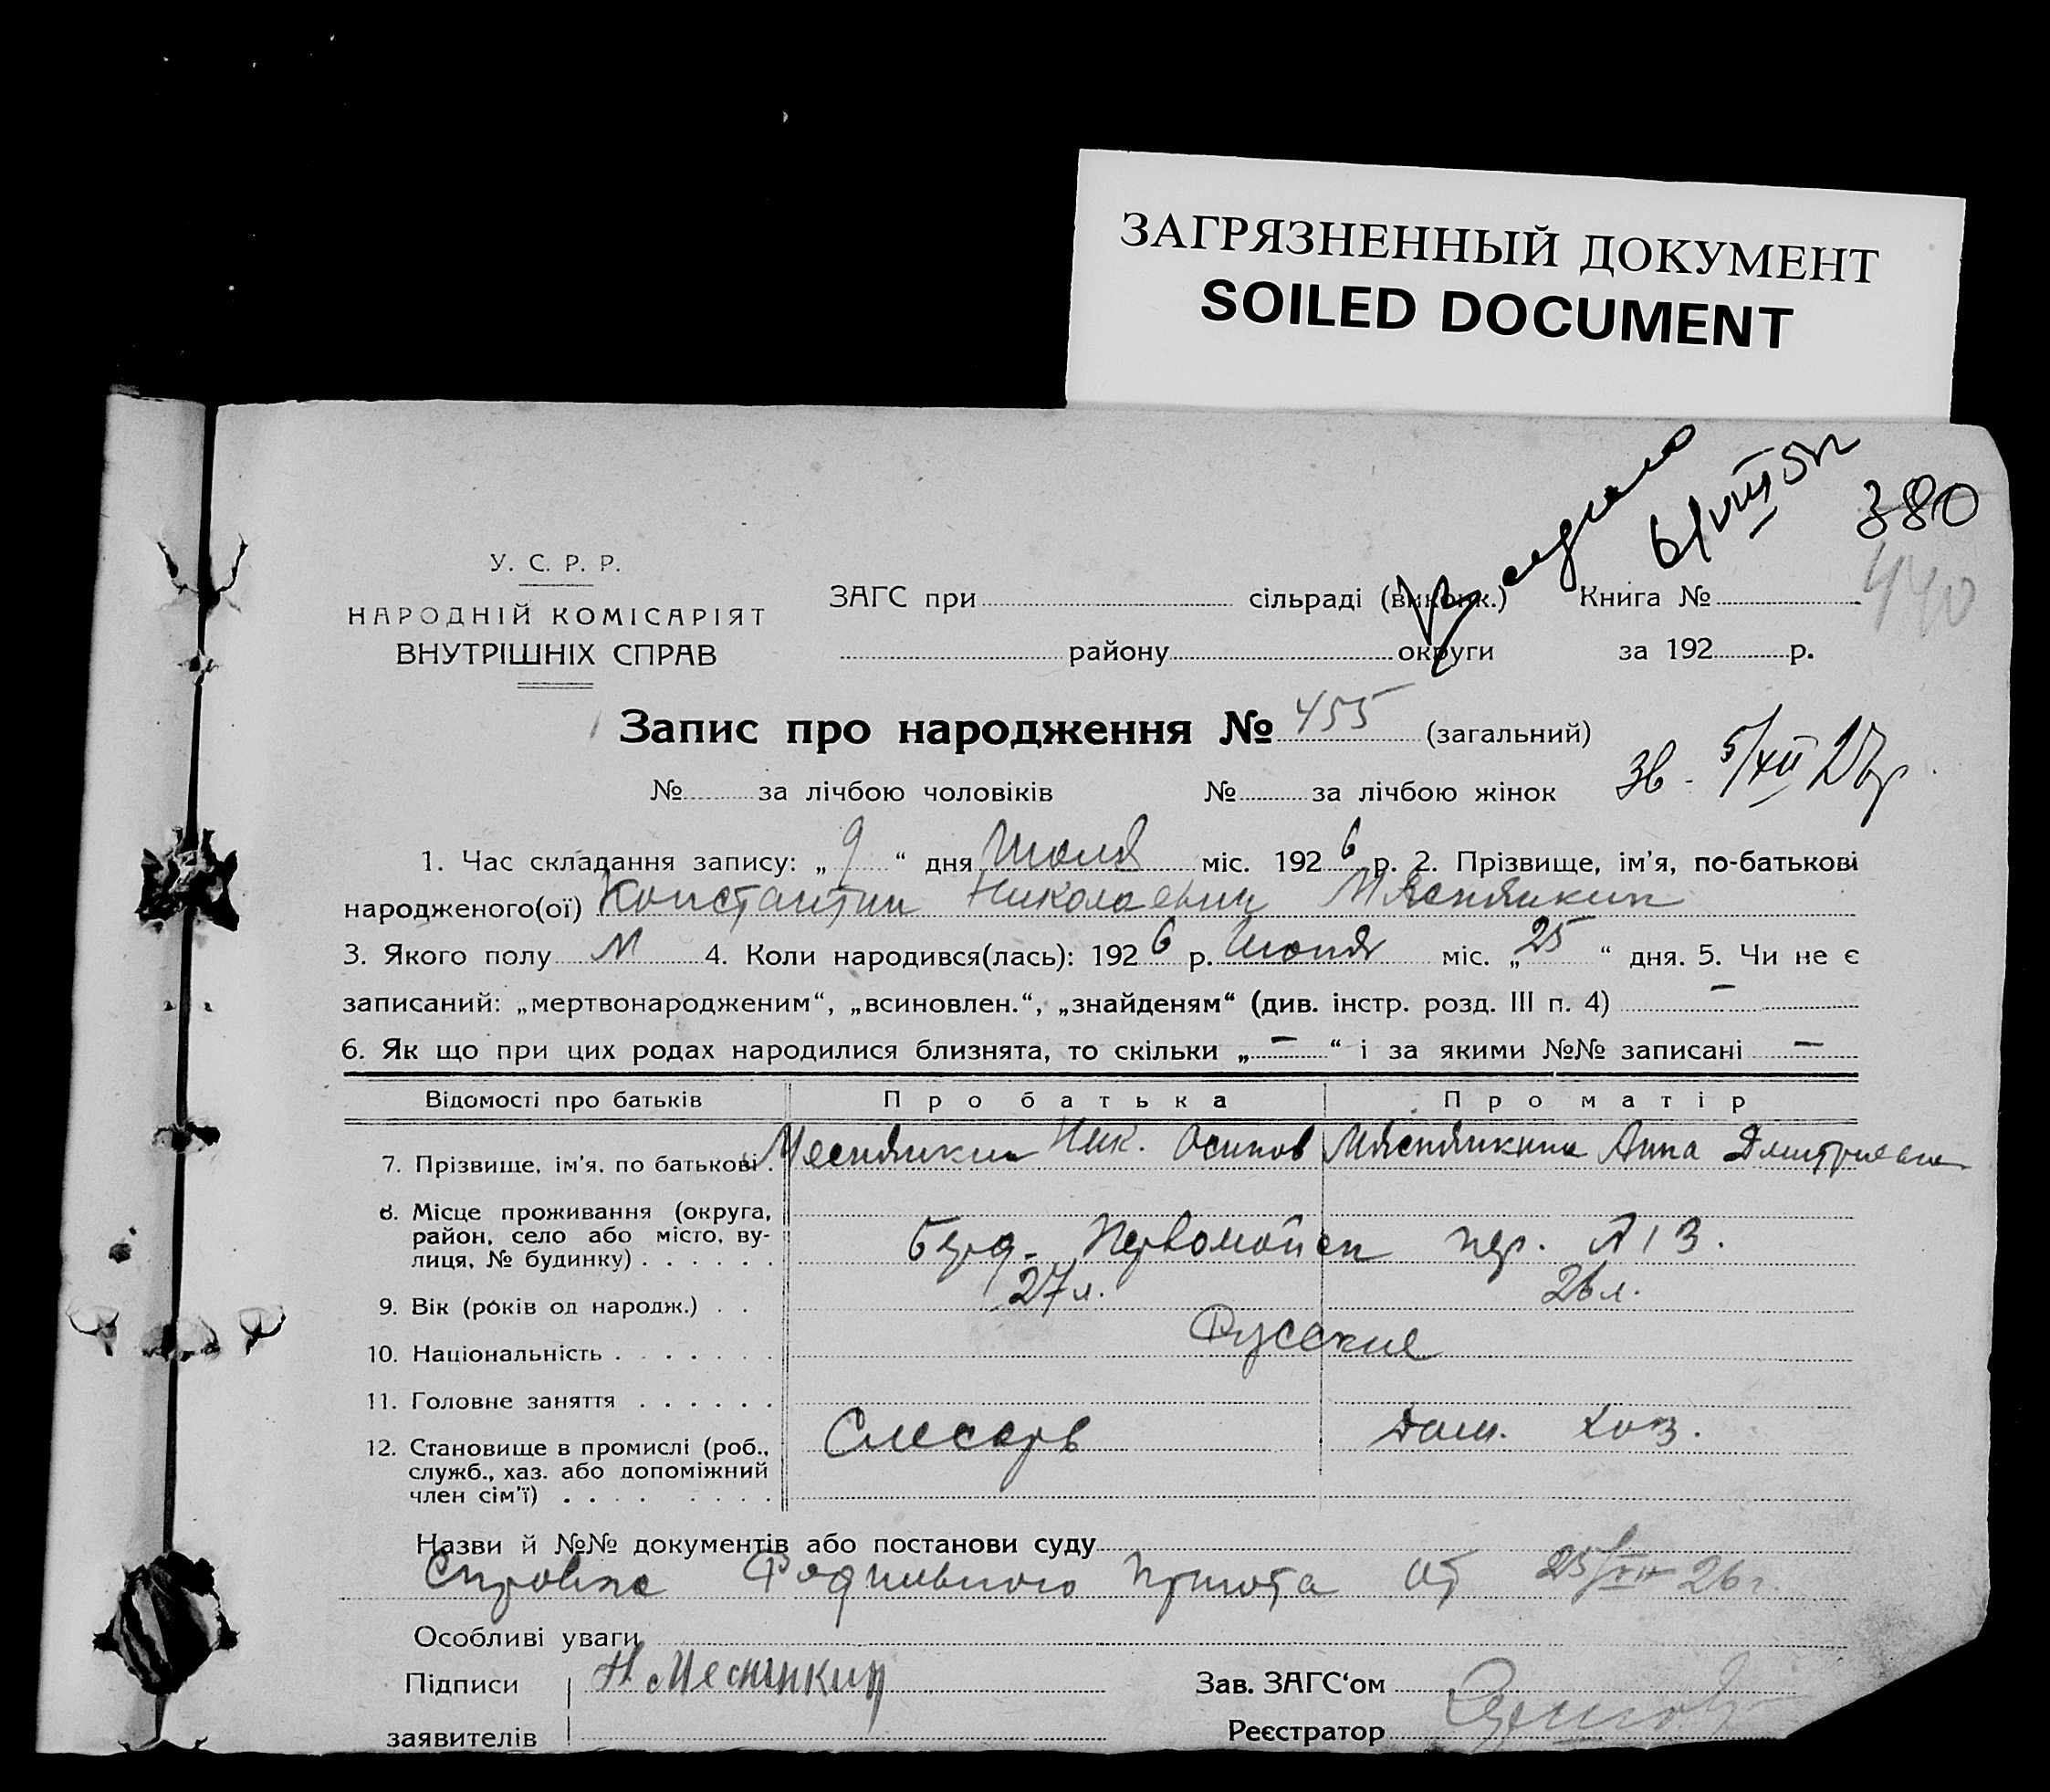 ЗАГРЯЗНЕННЫЙ ДОКУМЕНТ
SOILED DOCUMENT
6/VIII
380
440
У. С. Р. Р.
НАРОДНІЙ КОМІСАРІЯТ
ВНУТРІШНІХ СПРАВ
ЗАГС при сільраді (виконк.) Книга №
району округи за 192 р.
Запис про народження № 455 (загальний)
№ за лічбою чоловіків № за лічбою жінок
5/XII
1. Час складання запису: „ 9 “ дня Июля міс. 192 6 р. 2. Прізвище, ім'я, по-батькові
народженого(ої) Константин Николаевич Мяснянкин
3. Якого полу М 4. Коли народився(лась): 192 6 р. Июня міс. „ 25 “ дня. 5. Чи не є
записаний: „мертвонародженим“, „всиновлен.“, „знайденям“ (див. інстр. розд. III п. 4) —
6. Як що при цих родах народилися близнята, то скільки „ — “ і за якими №№ записані —
Відомості про батьків Про батька Про матір
7. Прізвище, ім'я, по батькові . Меснянкин Ник. Осипов Мяснянкина Анна Дмитриевна
8. Місце проживання (округа,
район, село або місто, ву-
лиця, № будинку) . . . . . . Первомайск пер. № 13.
9. Вік (років од народж.) . . 27 л. 26 л.
10. Національність . . . . . . . Русские
11. Головне заняття . . . . . .
12. Становище в промислі (роб.,
служб., хаз. або допоміжний
член сім'ї) . . . . . . . . Слесарь Дом. хоз.
Назви й №№ документів або постанови суду
Справка Родильного Приюта от 26 г.
Особливі уваги
Підписи Н Меснянкин Зав. ЗАГС‘ом
заявителів Реєстратор